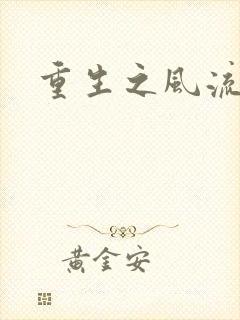 重生之風流
黃金安